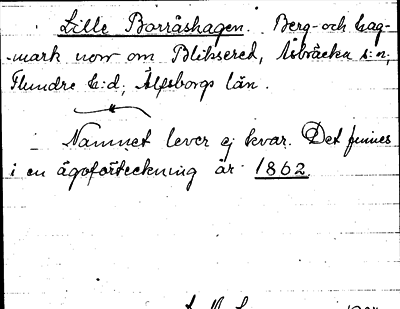 Lille Borråshagen. Berg- och hag-
-mark norr om Bliksered, Åsbräcka s:n,
Flundre h:d, Älfsborgs län.
Namnet lever ej kvar. Det finnes
i en ägoförteckning år 1862.